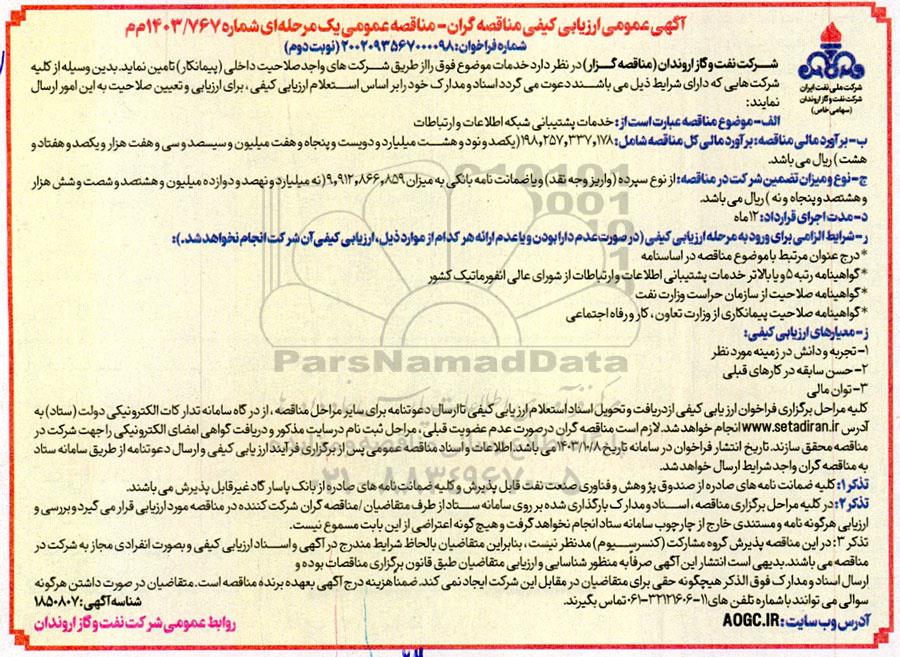 آگهی عمومی ارزیابی کیفی مناقصه گران - مناقصه عمومی یک مرحله ای شماره ۱۴۰۳/۷۶۷م‌م
شماره فراخوان: ۲۰۰۲۰۹۳۵۶۷۰۰۰۰۹۸ (نوبت دوم)
شرکت ملی نفت ایران
شرکت نفت و گاز اروندان
(سهامی خاص)
شرکت نفت و گاز اروندان (مناقصه گزار) در نظر دارد خدمات موضوع فوق را از طریق شرکت های واجد صلاحیت داخلی (پیمانکار) تامین نماید. بدین وسیله از کلیه
شرکت هایی که دارای شرایط ذیل می باشند دعوت می گردد اسناد و مدارک خود را بر اساس استعلام ارزیابی کیفی، برای ارزیابی و تعیین صلاحیت به این امور ارسال
نمایند:
الف- موضوع مناقصه عبارت است از: خدمات پشتیبانی شبکه اطلاعات و ارتباطات
ب- برآورد مالی مناقصه: برآورد مالی کل مناقصه شامل: ۱۹۸,۲۵۷,۳۳۷,۱۷۸ (یکصد و نود و هشت میلیارد و دویست و پنجاه و هفت میلیون و سیسصد و سی و هفت هزار و یکصد و هفتاد و
هشت) ریال می باشد.
ج- نوع و میزان تضمین شرکت در مناقصه: از نوع سپرده (واریز وجه نقد) و یا ضمانت نامه بانکی به میزان ۹,۹۱۲,۸۶۶,۸۵۹ (نه میلیارد و نهصد و دوازده میلیون و هشتصد و شصت و شش هزار
و هشتصد و پنجاه و نه) ریال می باشد.
د- مدت اجرای قرارداد: ۱۲ ماه
ر- شرایط الزامی برای ورود به مرحله ارزیابی کیفی (در صورت عدم دارا بودن و یا عدم ارائه هر کدام از موارد ذیل، ارزیابی کیفی آن شرکت انجام نخواهد شد.):
*درج عنوان مرتبط با موضوع مناقصه در اساسنامه
*گواهینامه رتبه ۵ و یا بالاتر خدمات پشتیبانی اطلاعات و ارتباطات از شورای عالی انفورماتیک کشور
*گواهینامه صلاحیت از سازمان حراست وزارت نفت
*گواهینامه صلاحیت پیمانکاری از وزارت تعاون، کار و رفاه اجتماعی
ز- معیارهای ارزیابی کیفی:
۱- تجربه و دانش در زمینه مورد نظر
۲- حسن سابقه در کارهای قبلی
۳- توان مالی
ParsNamadData
کلیه مراحل برگزاری فراخوان ارزیابی کیفی از دریافت و تحویل اسناد استعلام ارزیابی کیفی تا ارسال دعوتنامه برای سایر مراحل مناقصه، از درگاه سامانه تدارکات الکترونیکی دولت (ستاد) به
آدرس www.setadiran.ir انجام خواهد شد. لازم است مناقصه گران درصورت عدم عضویت قبلی، مراحل ثبت نام در سایت مذکور و دریافت گواهی امضای الکترونیکی را جهت شرکت در
مناقصه محقق سازند. تاریخ انتشار فراخوان در سامانه تاریخ ۱۴۰۳/۱۰/۸ می باشد. اطلاعات و اسناد مناقصه عمومی پس از برگزاری فرآیند ارزیابی کیفی و ارسال دعوتنامه از طریق سامانه ستاد
به مناقصه گران واجد شرایط ارسال خواهد شد.
۰۲۱-۸۸۳۴۹۶۷۰-۵
تذکر ۱: کلیه ضمانت نامه های صادره از صندوق پژوهش و فناوری صنعت نفت قابل پذیرش و کلیه ضمانت نامه های صادره از بانک پاسارگاد غیرقابل پذیرش می باشند.
تذکر ۲: در کلیه مراحل برگزاری مناقصه، اسناد و مدارک بارگذاری شده بر روی سامانه ستاد از طرف متقاضیان /مناقصه گران شرکت کننده در مناقصه مورد ارزیابی قرار می گیرد و بررسی و
ارزیابی هرگونه نامه و مستندی خارج از چارچوب سامانه ستاد انجام نخواهد گرفت و هیچ گونه اعتراضی از این بابت مسموع نیست.
تذکر ۳: در این مناقصه پذیرش گروه مشارکت (کنسرسیوم) مدنظر نیست، بنابراین متقاضیان بالحاظ شرایط مندرج در آگهی و اسناد ارزیابی کیفی و بصورت انفرادی مجاز به شرکت در
مناقصه می باشند. بدیهی است انتشار این آگهی صرفا به منظور شناسایی و ارزیابی متقاضیان طبق قانون برگزاری مناقصات بوده و
ارسال اسناد و مدارک فوق الذکر هیچگونه حقی برای متقاضیان در مقابل این شرکت ایجاد نمی کند. ضمنا هزینه درج آگهی بعهده برنده مناقصه است. متقاضیان در صورت داشتن هرگونه
سوالی می توانند با شماره تلفن های ۱۱-۳۲۱۲۱۶۰۶-۰۶۱ تماس بگیرند.
شناسه آگهی: ۱۸۵۰۸۰۷
آدرس وب سایت: AOGC.IR
روابط عمومی شرکت نفت و گاز اروندان